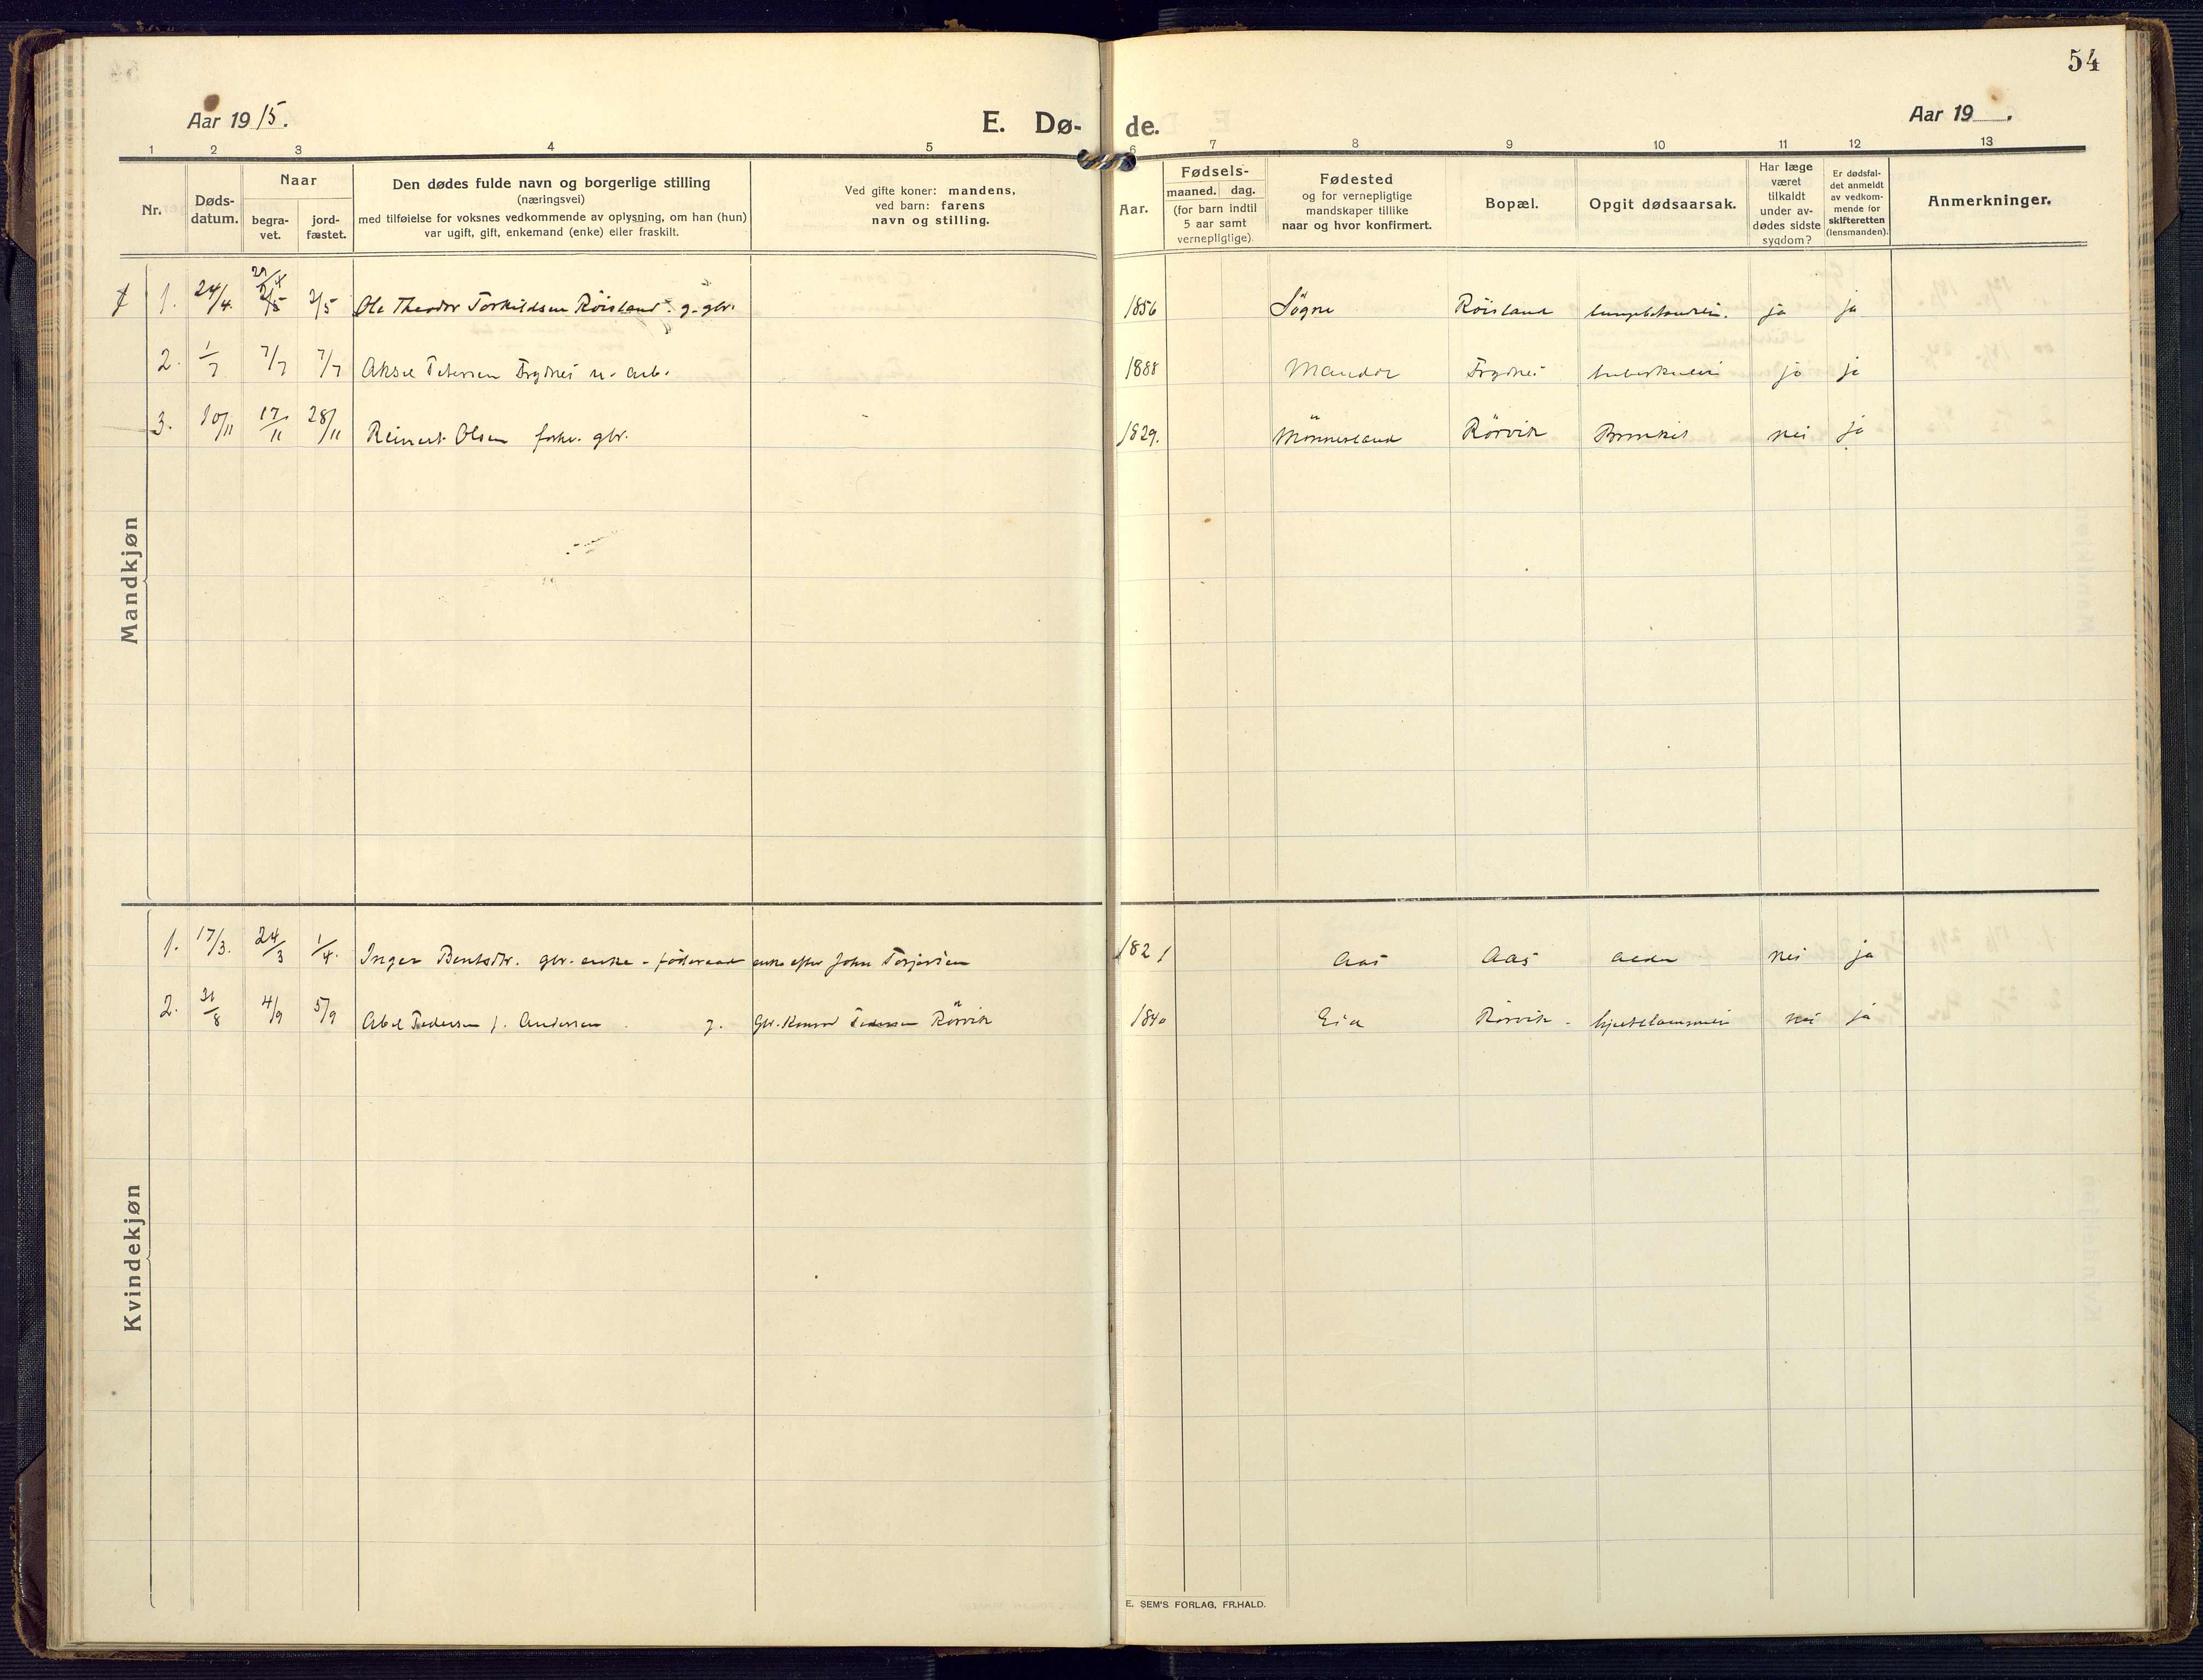 54
Aar 19 15.
E. Dø-
de.
Aar 19 .
1 2 3 4 5 6 7 8 9 10 11 12 13
Nr.
Døds-
datum.
Naar
begra-
vet.
jord-
fæstet.
Den dødes fulde navn og borgerlige stilling
(næringsvei)
med tilføielse for voksnes vedkommende av oplysning, om han (hun)
var ugift, gift, enkemand (enke) eller fraskilt.
Ved gifte koner: mandens,
ved barn: farens
navn og stilling.
Aar.
Fødsels-
maaned. dag.
(for barn indtil
5 aar samt
vernepligtige).
Fødested
og for vernepligtige
mandskaper tillike
naar og hvor konfirmert.
Bopæl.
Opgit dødsaarsak.
Har læge
været
tilkaldt
under av-
dødes sidste
sygdom?
Er dødsfal-
det anmeldt
av vedkom-
mende for
skifteretten
(lensmanden).
Anmerkninger.
Mandkjøn
1. 24/4. 2/5 Ole Theodor Torkildsen Røisland. g. gbr. 1856 Søgne Røisland ja ja
2. 1/7 7/7 7/7 Aksel Petersen Frydnes u. arb. 1888 Mandal Frydnes tuberkulose ja ja
3. 10/11 17/11 28/11 Reinert Olsen forhv. gbr. 1829. Mønnesland Rørvik Bronkit nei ja
Kvindekjøn
1. 17/3. 24/3 1/4. Inger Bentsdtr. gbr. enke - føderaad enke efter John Torjersen 1821 Aas Aas alder nei ja
2. 31/8 4/9 5/9 Abel Pedersen f. Andersen g. Gbr. Konrad Pedersen Rørvik 1840 Eia Rørvik - hjertelammelse nei ja
E. SEM'S FORLAG, FR.HALD.